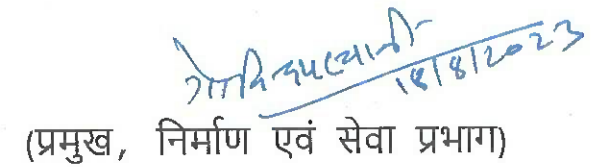 18/8/2023
(प्रमुख, निर्माण एवं सेवा प्रभाग)